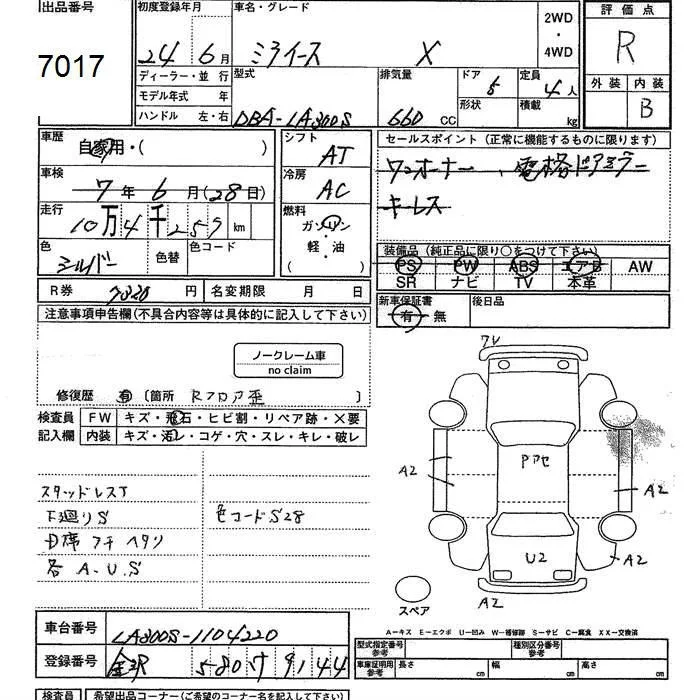 出品番号 初度登録年月 車名・グレード 2WD・4WD 評価点
7017 24年 6月 ミライース X R
ディーラー・並行 型式 排気量 ドア 定員 外装 内装
モデル年式 年 5 4人 B
ハンドル 左・右 DBA-LA300S 660CC 形状 積載 kg
車歴 自家用・( ) シフト AT セールスポイント(正常に機能するものに限ります)
車検 7年6月(28日) 冷房 AC ワンオーナー、電格ドアミラー
走行 10万4千257km 燃料 ガソリン キーレス
色 シルバー 色替 色コード 軽・油 ( ) 装備品(純正品に限り○をつけて下さい)
PS PW ABS エアB AW
SR ナビ TV 本革
R券 7820円 名変期限 月 日 新車保証書 有・無 後日品
注意事項申告欄(不具合内容等は具体的に記入して下さい)
ノークレーム車
no claim
修復歴 有 〔箇所 Rフロア歪 〕
検査員 FW キズ・飛石・ヒビ割・リペア跡・×要
記入欄 内装 キズ・汚レ・コゲ・穴・スレ・キレ・破レ
スタッドレスT
下廻りS 色コードS28
D席フチヘタリ
各A.U.S
Pアセ
A2 A2
U2 A2
A2
スペア
A-キズ E-エクボ U-凹み W-補修跡 S-サビ C-腐食 XX-交換済
車台番号 LA300S-1104220
型式指定番号 参考 種別区分番号 参考
登録番号 金沢 580 9144
車庫証明用 参考 長さ cm 幅 cm 高さ cm
検査員 希望出品コーナー(ご希望のコーナー名を記入して下さい)